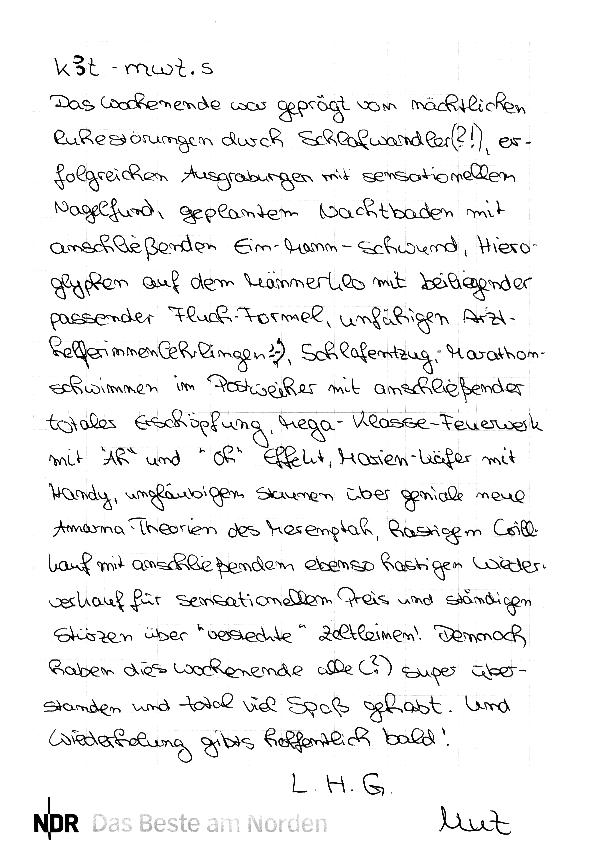 k3t - mwt.s
Das Wochenende war geprägt von nächtlichen
Ruhestörungen durch Schlafwandler(?!), er-
folgreichen Ausgrabungen mit sensationellem
Nagelfund, geplantem Nachtbaden mit
anschließenden Ein-Mann-Schwund, Hiero-
glyphen auf dem Männerklo mit beiliegender
passender Fluch-Formel, unfähigen Arzt-
helferinnen(Lehrlingen :-)), Schlafentzug, Marathon-
schwimmen im Postweiher mit anschließender
totaler Erschöpfung, Mega-Klasse-Feuerwerk
mit "Ah" und "Oh" Effekt, Marien-Käfer mit
Handy, ungläubigem staunen über geniale neue
Amarna-Theorien des Merenptah, hastigem Grill-
kauf mit anschließendem ebenso hastigen Wieder-
verkauf für sensationellem Preis und ständigen
Stürzen über "versteckte" Zeltleinen! Dennoch
haben dies Wochenende alle (?) super über-
standen und total viel Spaß gehabt. Und
Wiederholung gibts hoffentlich bald!
L. H. G.
Mut
NDR Das Beste am Norden